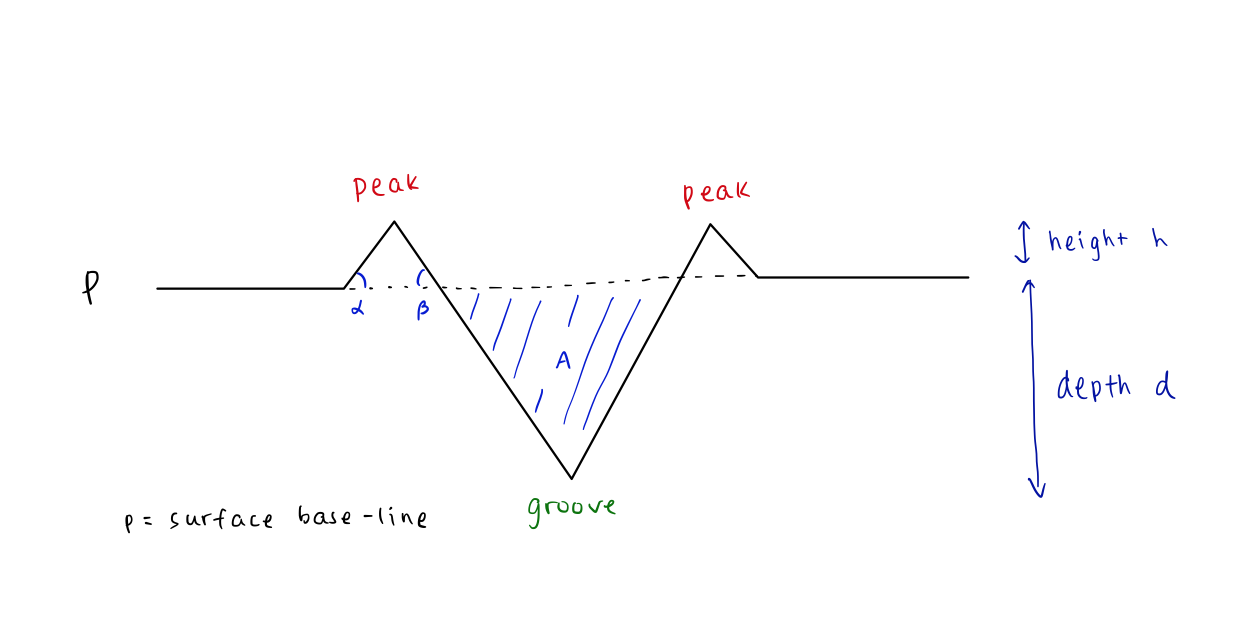 peak
peak
height h
P
α
β
A
depth d
groove
p = surface base-line